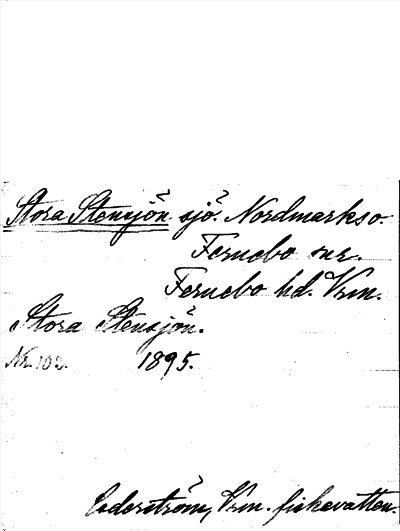 Stora Stensjön sjö. Nordmarks o.
Fernebo snr.
Fernebo hd. Vrm.
Stora Stensjön.
Nr. 103. 1895.
Cederström, Vrm. fiskevatten.